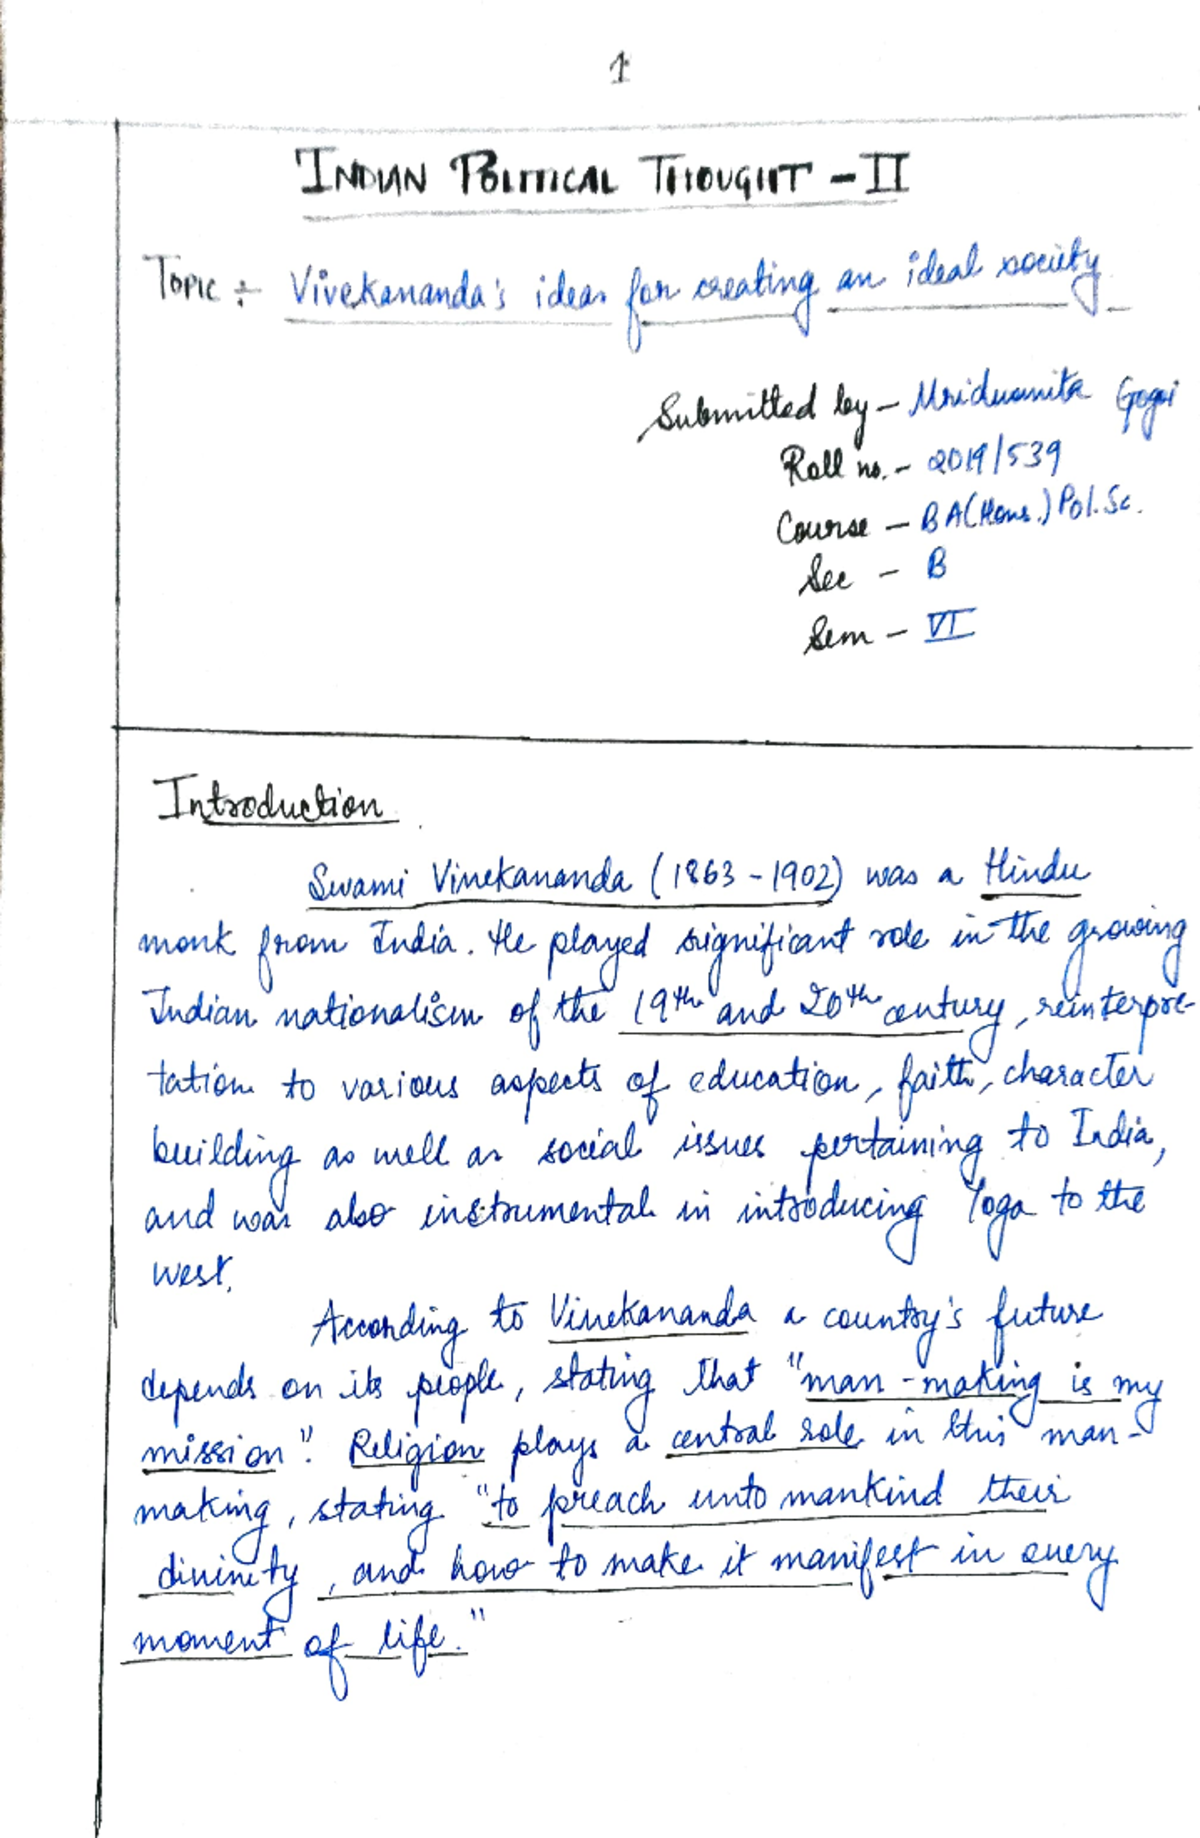 1
INDIAN POLITICAL THOUGHT - II
Topic :- Vivekananda's ideas for creating an ideal society
Submitted by - Mriduanita Gogoi
Roll no. - 2019/539
Course - BA(Hons.) Pol.Sc.
Sec - B
Sem - VI
Introduction
Swami Vivekananda (1863 - 1902) was a Hindu
monk from India. He played significant role in the growing
Indian nationalism of the 19th and 20th century, reinterpre-
tation to various aspects of education, faith, character
building as well as social issues pertaining to India,
and was also instrumental in introducing Yoga to the
west.
According to Vivekananda a country's future
depends on its people, stating that "man-making is my
mission". Religion plays a central role in this man-
making, stating "to preach unto mankind their
divinity, and how to make it manifest in every
moment of life."